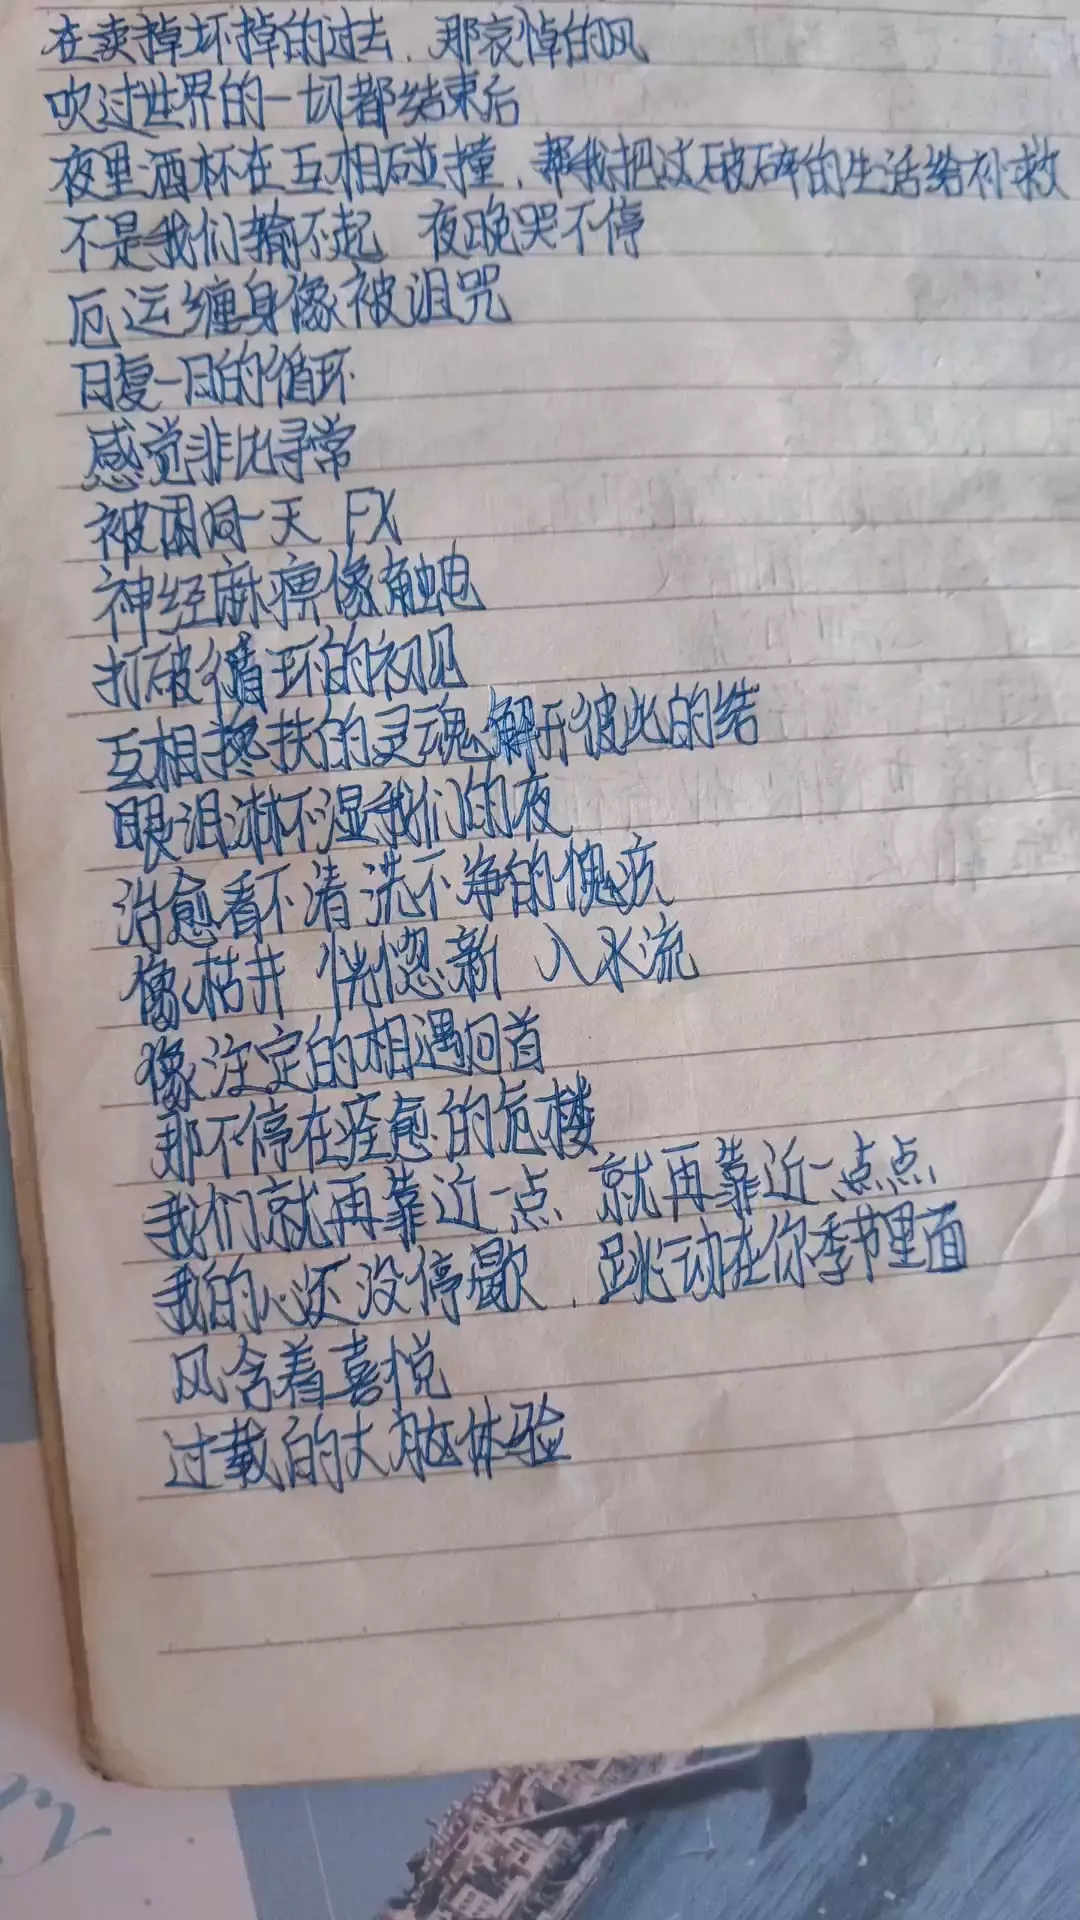 在卖掉坏掉的过去，那哀悼的风
吹过世界的一切都结束后
夜里酒杯在互相碰撞，帮我把这破碎的生活给补救
不是我们输不起 夜晚哭不停
厄运缠身像被诅咒
日复一日的循环
感觉非比寻常
被困同一天 FX
神经麻痹像触电
打破循环的初见
互相搀扶的灵魂解开彼此的结
眼泪淋不湿我们的夜
治愈看不清洗不净的愧疚
像枯井 恍惚新 入水流
像注定的相遇回首
那不停在痊愈的危楼
我们就再靠近一点 就再靠近一点点
我的心还没停歇，跳动在你季节里面
风含着喜悦
过载的大脑体验